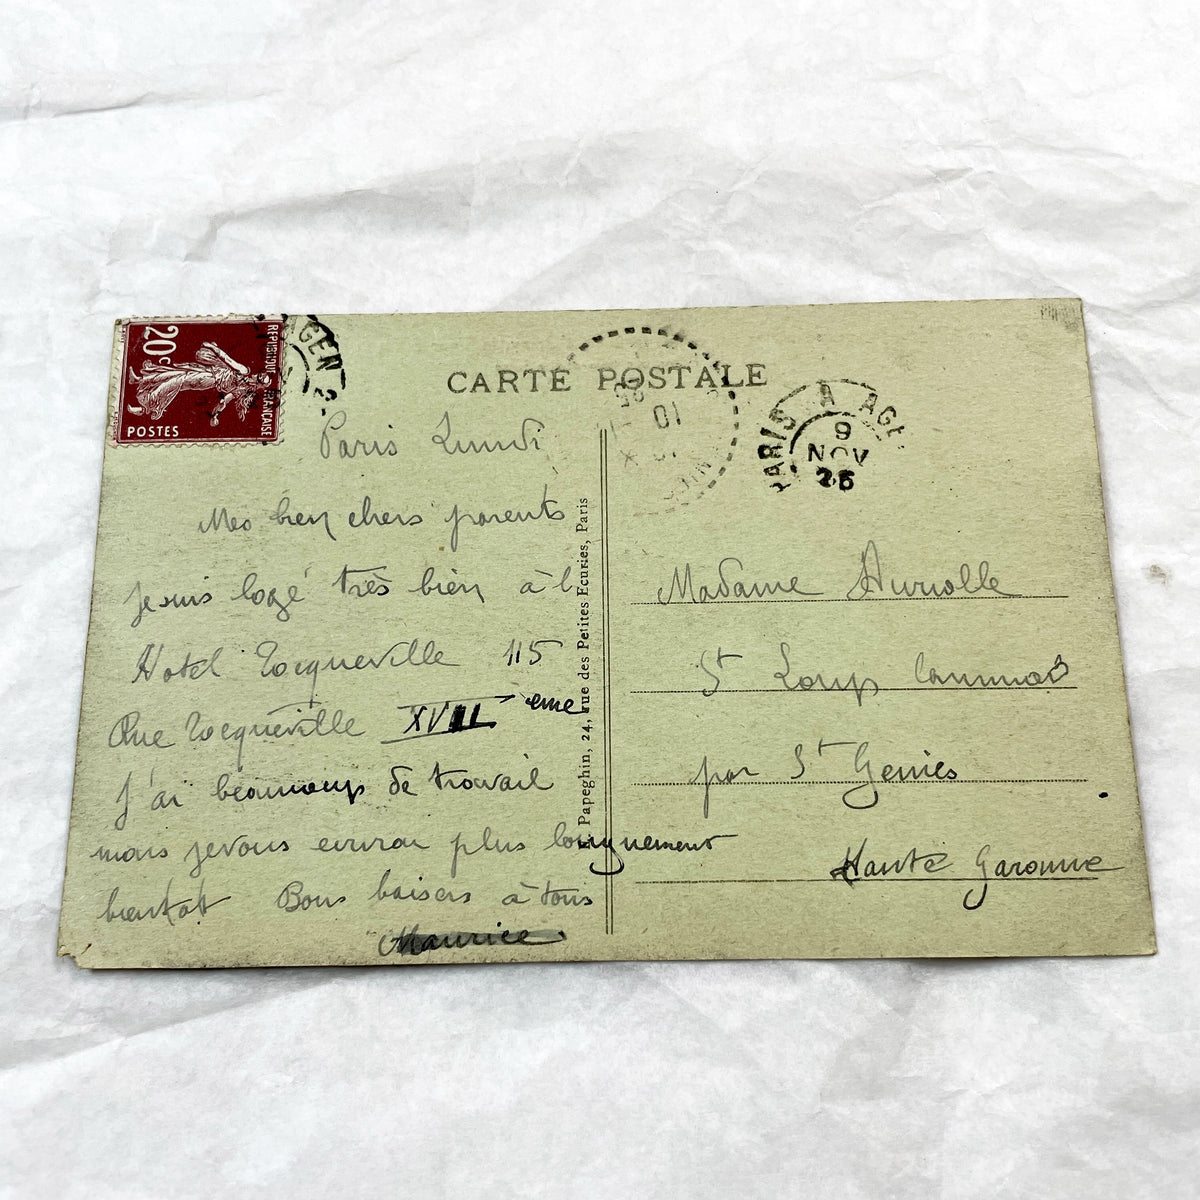 20c
REPUBLIQUE FRANÇAISE
POSTES
AGEN
CARTE POSTALE
10
PARIS A AGEN
9
NOV
26
Paris Lundi
Mes bien chers parents
je suis logé très bien à l
Hotel Tocqueville 115
Rue Tocqueville XVII ème
J'ai beaucoup de travail
mais je vous ecrirai plus longuement
bientot Bons baisers à tous
Maurice
Papeghin, 24, rue des Petites Ecuries, Paris
Madame Auriolle
St Loup Cammas
par St Genies
Haute Garonne